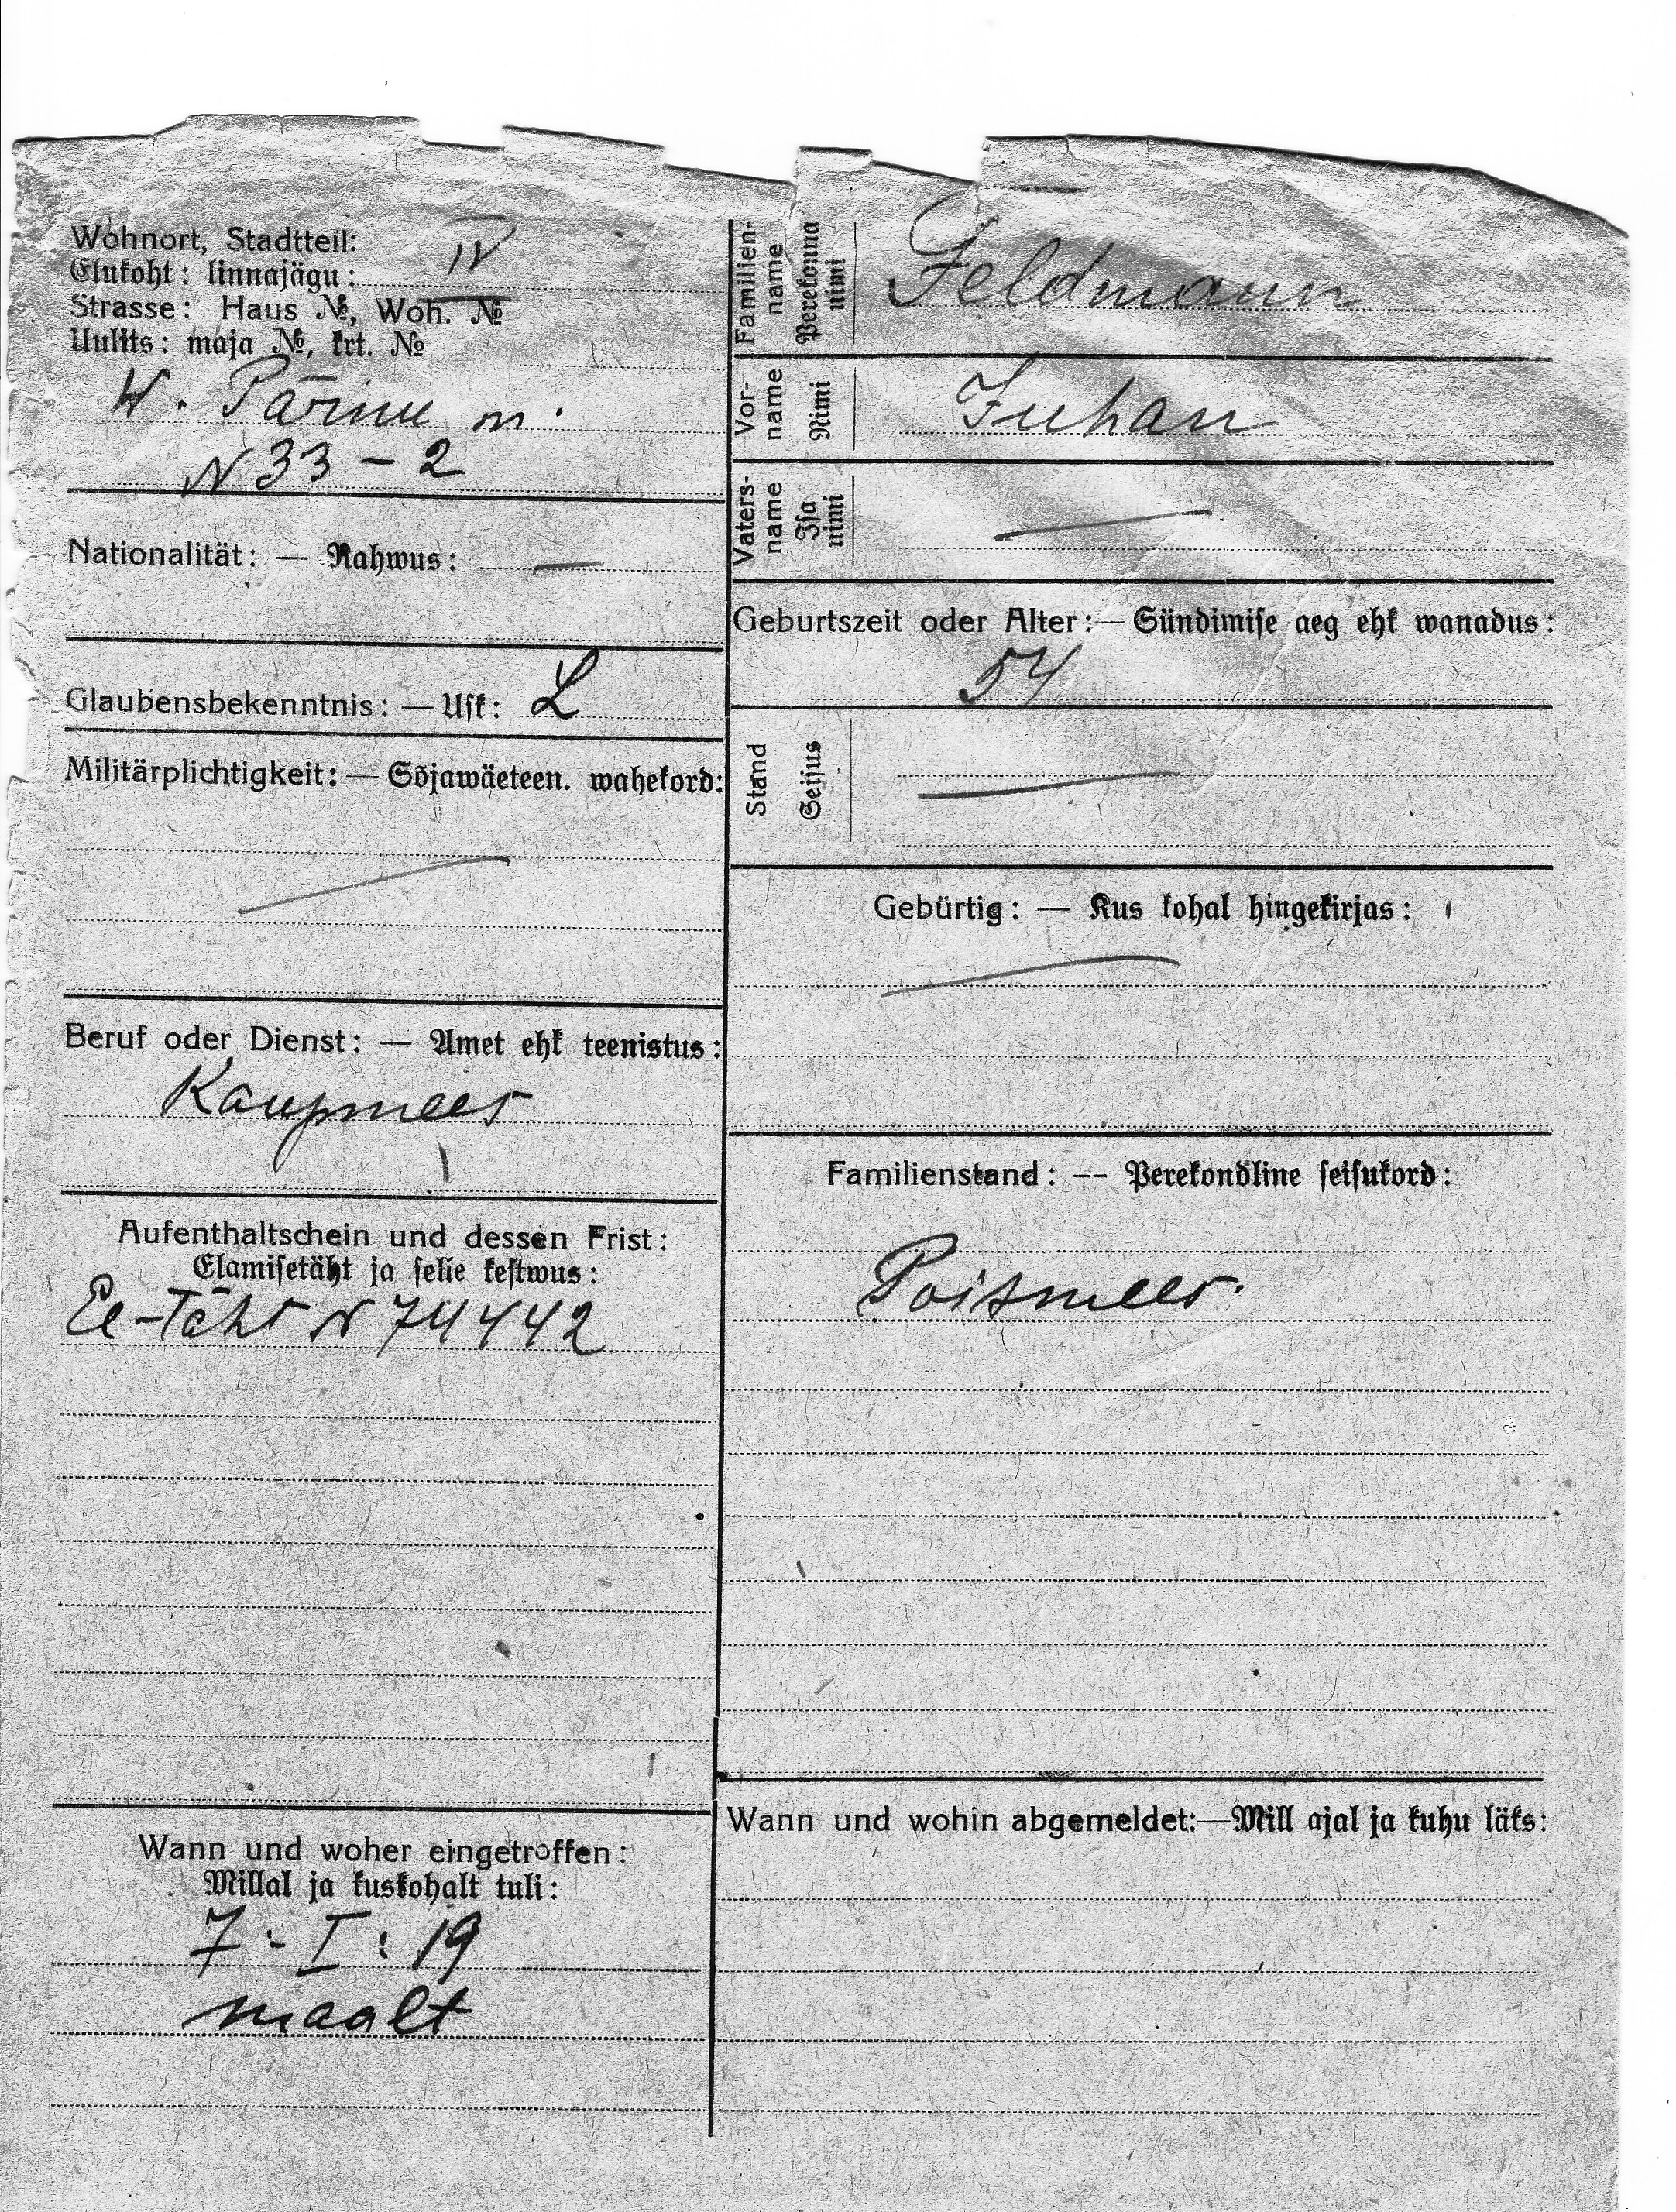 Wohnort, Stadtteil:
Elukoht: linnajägu: IV
Strasse: Haus №, Woh. №
Uulits: maja №, krt. №
W. Pärnu m.
N 33 – 2
Nationalität: — Rahwus: —
Glaubensbekenntnis: — Uſk: L
Militärplichtigkeit: — Sõjawäeteen. wahekord:
Beruf oder Dienst: — Amet ehk teenistus:
Kaupmees
Aufenthaltschein und dessen Frist:
Elamiſetäht ja ſelle keſtwus:
El-Täht N 74442
Wann und woher eingetroffen:
Millal ja kuskohalt tuli:
7 : I : 19
maalt
Familien-
name
Perekonna
nimi
Feldmann
Vor-
name
Nimi
Juhan
Vaters-
name
Iſa
nimi
—
Geburtszeit oder Alter: — Sündimiſe aeg ehk wanadus:
54
Stand
Seiſus
—
Gebürtig: — Kus kohal hingekirjas:
—
Familienstand: — Perekondline ſeiſukord:
Poismees.
Wann und wohin abgemeldet:—Mill ajal ja kuhu läks: